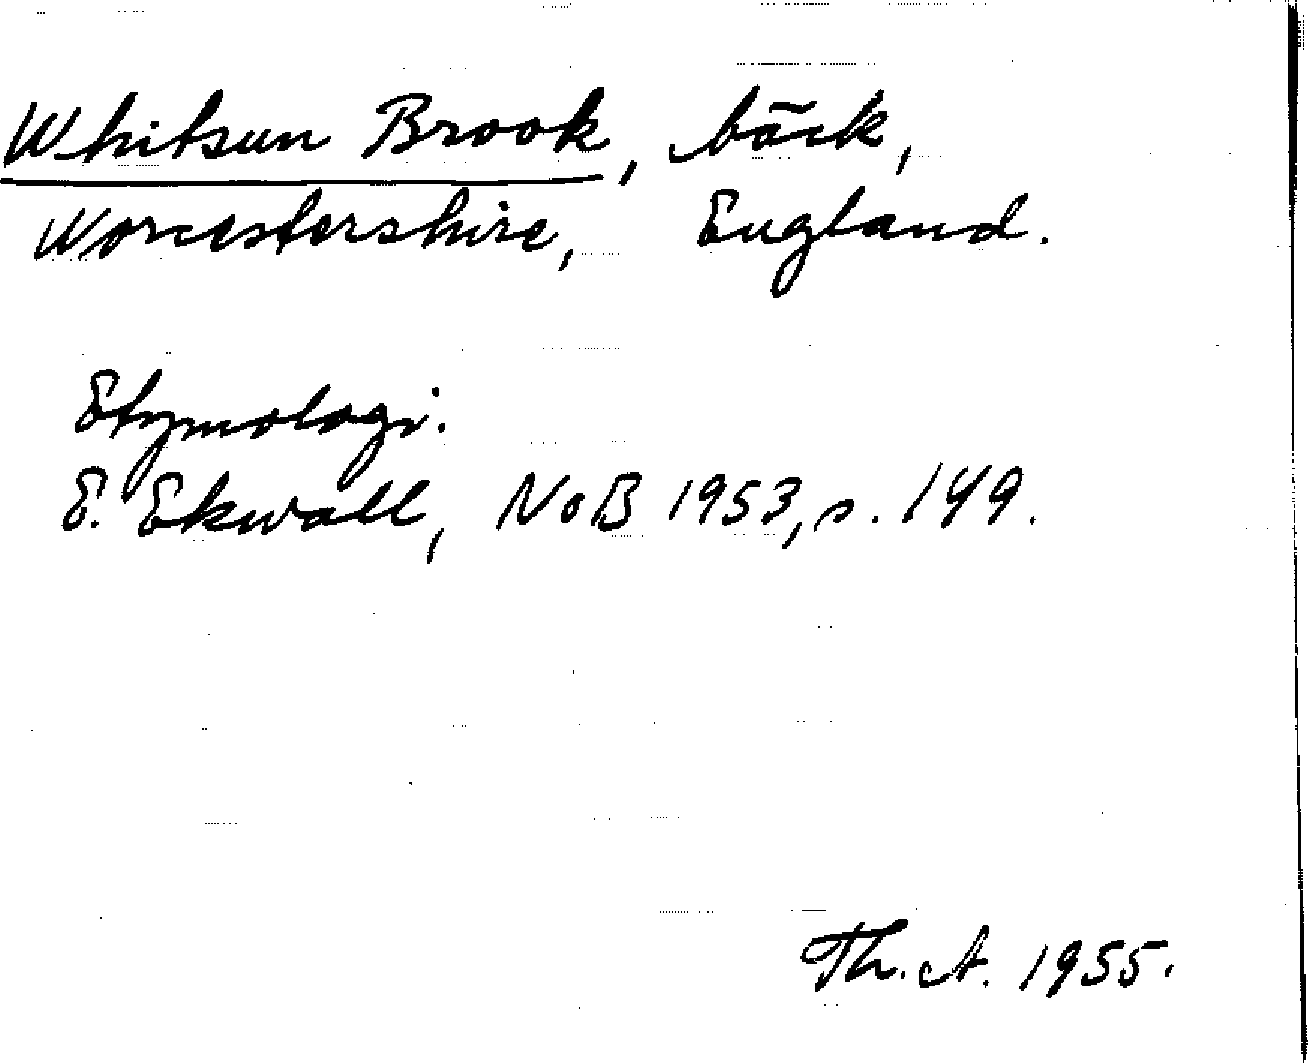 Whitsun Brook, bäck,
Worcestershire, England.
Etymologi.
E. Ekwall, NoB 1953, s. 149.
Th. A. 1955.